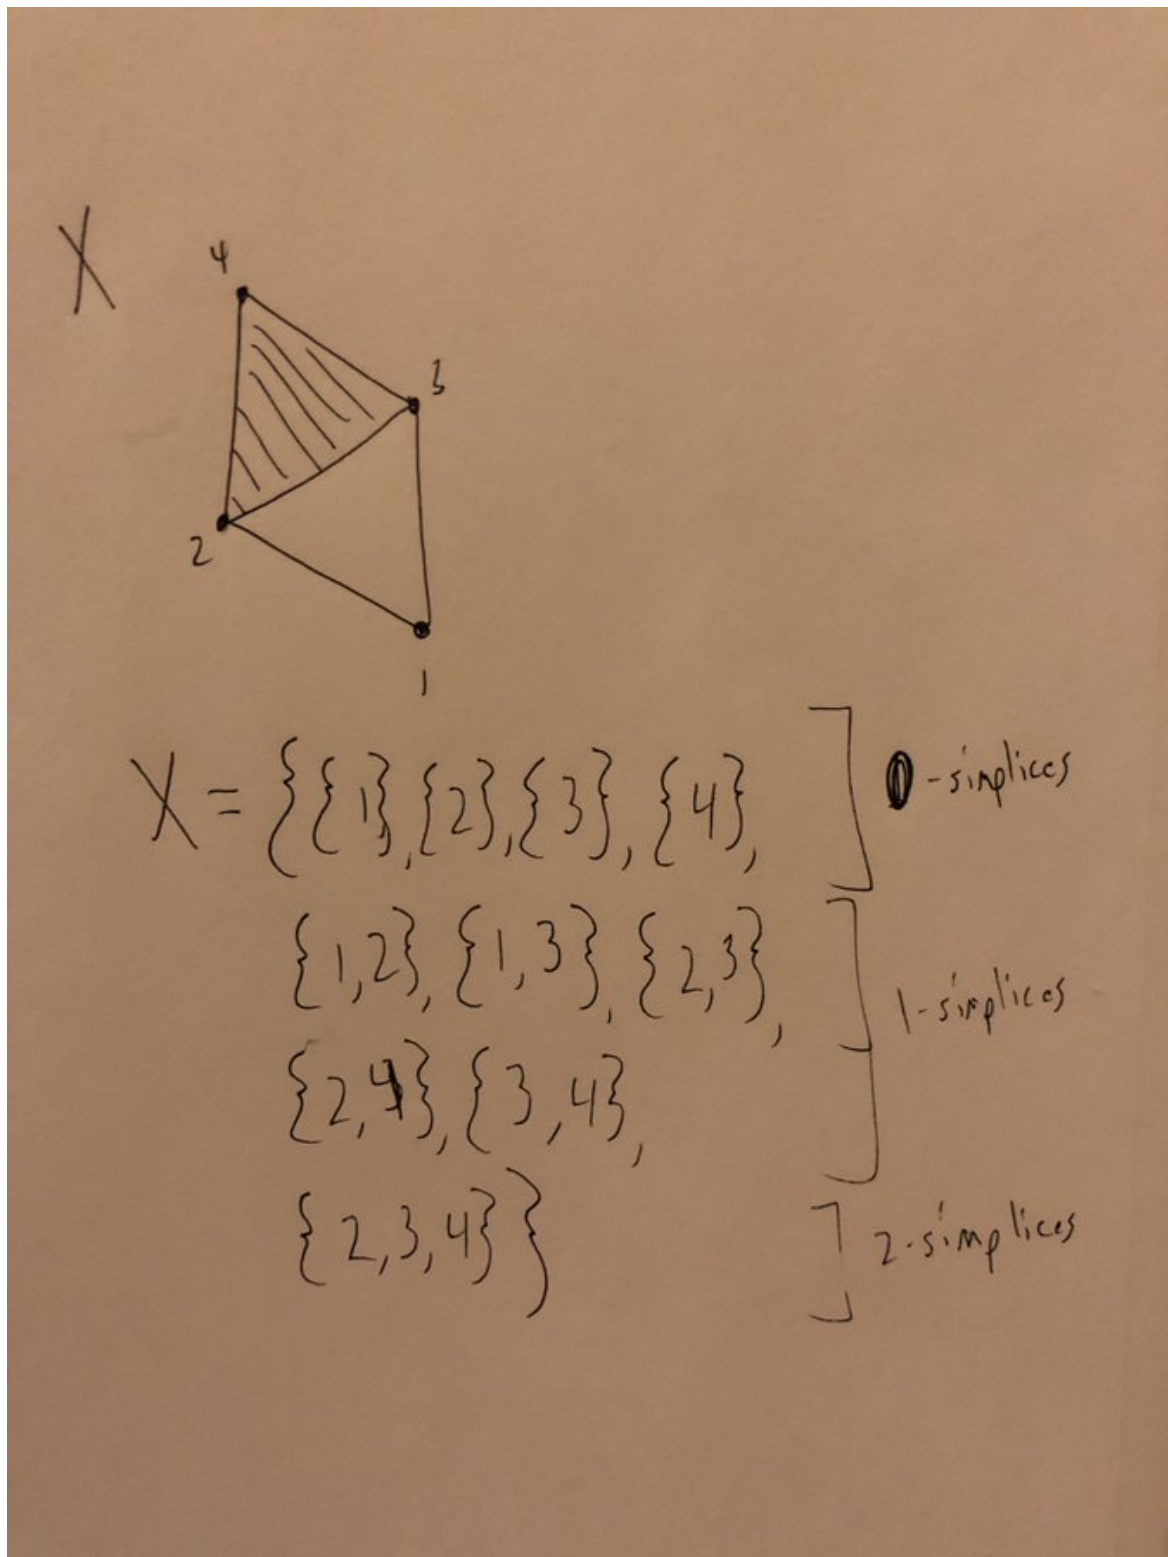 X
4
3
2
1
X = {{1},{2},{3},{4}, ] 0-simplices
{1,2},{1,3},{2,3}, ] 1-simplices
{2,4},{3,4},
{2,3,4}} ] 2-simplices